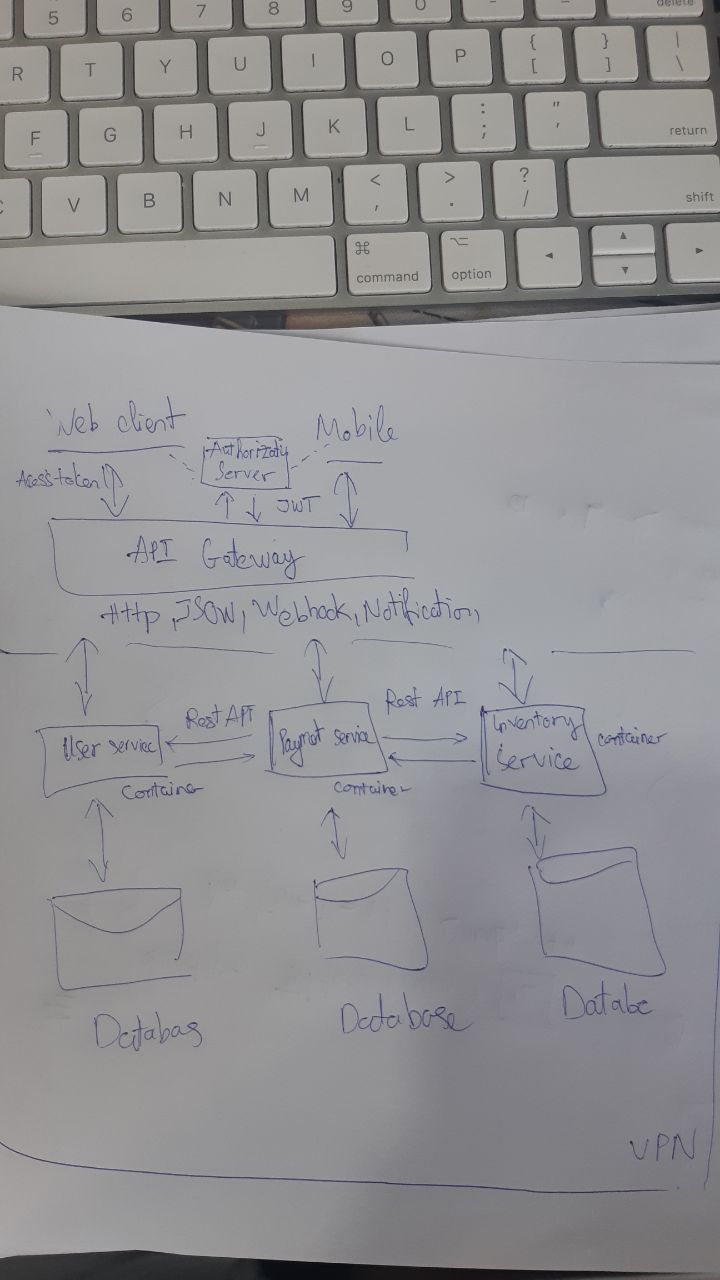 5 6 7 8 9 0 - = delete
R T Y U I O P { [ } ] | \
F G H J K L : ; " ' return
V B N M < , > . ? / shift
⌘ command ⌥ option ◄ ▲ ▼ ►
Web client
Authorizaty
Server
Mobile
Acess token
JWT
API Gateway
Http, JSOW, Webhook, Notification,
User service
Rest API
Paymnt service
Rest API
Inventory
Service
Container
Container
Container
Databas
Database
Databe
VPN